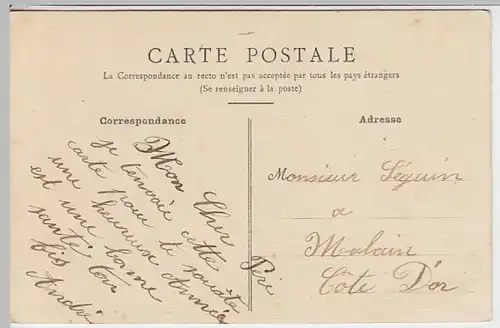 CARTE POSTALE
La Correspondance au recto n'est pas acceptée par tous les pays étrangers
(Se renseigner à la poste)
Correspondance
Adresse
Mon Cher Père
je t'envoie cette
carte pour te souaite
une heureuse Année
est une bonne
santé ton
fis
André
Monsieur Séguin
a
Malain
Côte D'or